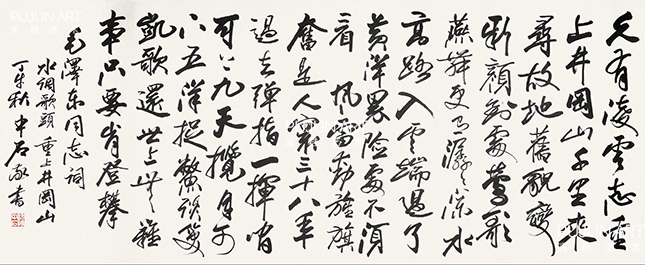 PUJUN ART
久有凌雲志重
上井岡山千里來
尋故地舊貌變
新顏到處鶯歌
燕舞更有潺〻流水
高路入雲端過了
黃洋界險處不須
看 風雷動旌旗
奮是人寰三十八年
過去彈指一揮間
可上九天攬月可
下五洋捉鱉談笑
凱歌還世上無難
事只要肯登攀
毛澤東同志詞
水調歌頭重上井岡山
秋中石敬書